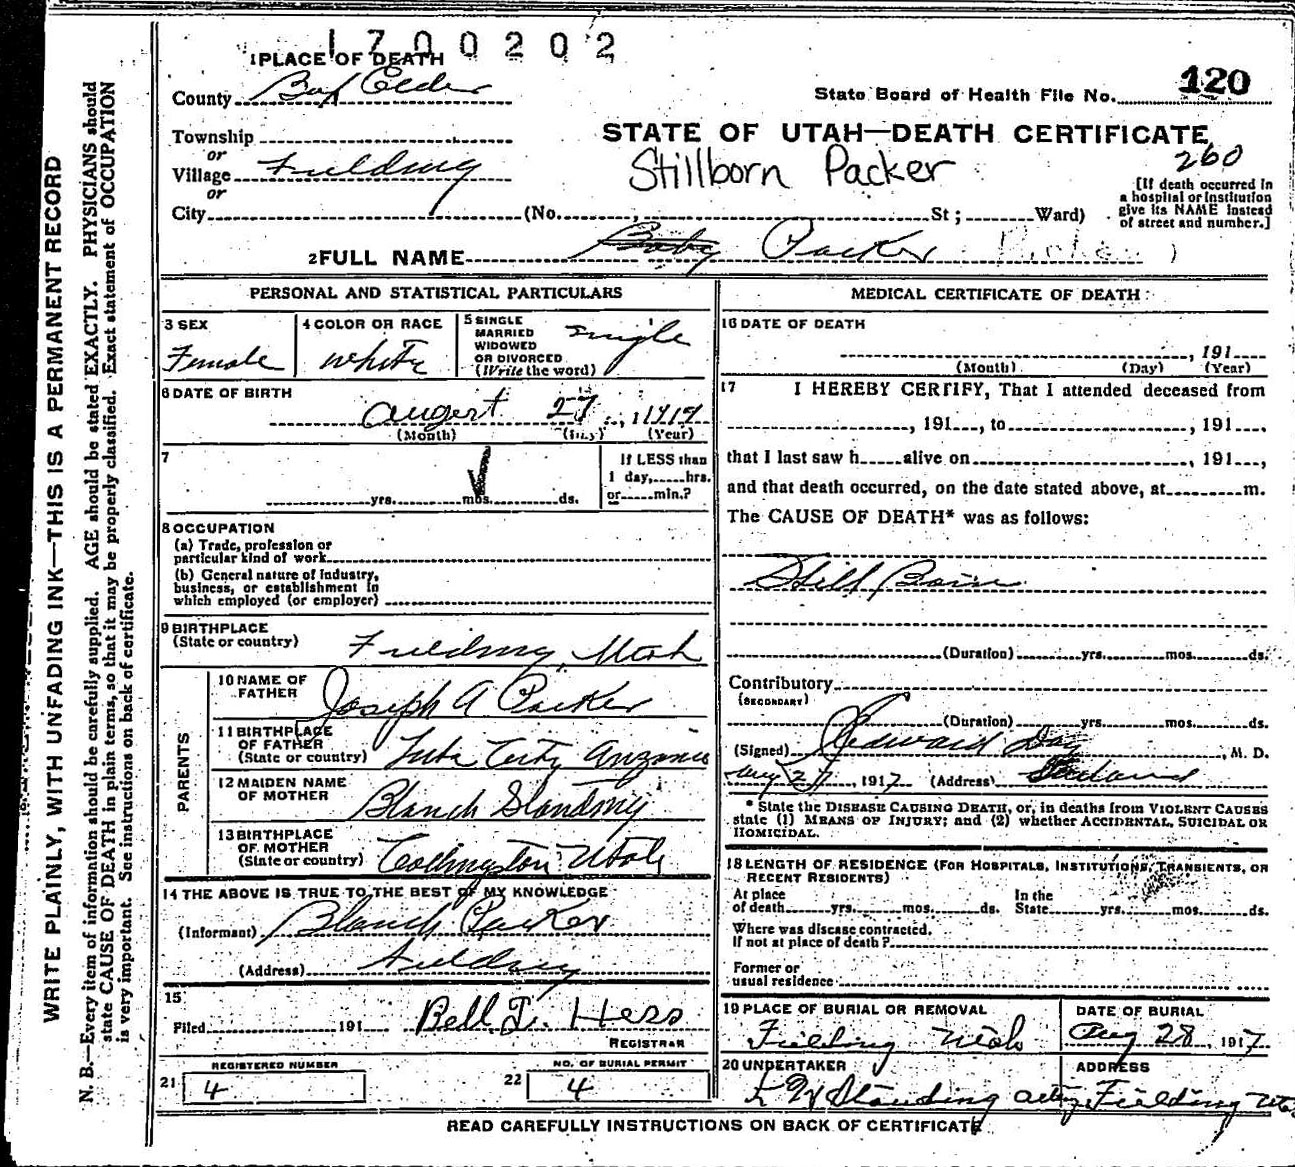 1700202
1 PLACE OF DEATH
County Box Elder
State Board of Health File No. 120
Township
or
Village Fielding
or
City (No. , St; Ward)
STATE OF UTAH—DEATH CERTIFICATE
Stillborn Packer
260
[If death occurred in
a hospital or institution
give its NAME instead
of street and number.]
2 FULL NAME Baby Packer
PERSONAL AND STATISTICAL PARTICULARS
3 SEX
Female
4 COLOR OR RACE
white
5 SINGLE
MARRIED
WIDOWED
OR DIVORCED
(Write the word)
single
6 DATE OF BIRTH
August 27, 1917
(Month) (Day) (Year)
7
yrs. mos. ds.
If LESS than
1 day, hrs.
or min.?
8 OCCUPATION
(a) Trade, profession or
particular kind of work
(b) General nature of Industry,
business, or establishment in
which employed (or employer)
9 BIRTHPLACE
(State or country) Fielding, Utah
PARENTS
10 NAME OF
FATHER Joseph A Packer
11 BIRTHPLACE
OF FATHER
(State or country) Tuba City Arizona
12 MAIDEN NAME
OF MOTHER Blanch Standing
13 BIRTHPLACE
OF MOTHER
(State or country) Collingston Utah
14 THE ABOVE IS TRUE TO THE BEST OF MY KNOWLEDGE
(Informant) Blanch Packer
(Address) Fielding
15
Filed 191 Bell T. Hess
REGISTRAR
REGISTERED NUMBER
21 4
NO. OF BURIAL PERMIT
22 4
MEDICAL CERTIFICATE OF DEATH
16 DATE OF DEATH
, 191
(Month) (Day) (Year)
17 I HEREBY CERTIFY, That I attended deceased from
, 191 , to , 191 ,
that I last saw h alive on , 191 ,
and that death occurred, on the date stated above, at m.
The CAUSE OF DEATH* was as follows:
Still Born
(Duration) yrs. mos. ds.
Contributory
(SECONDARY)
(Duration) yrs. mos. ds.
(Signed) Edward Day, M. D.
Aug 27, 1917 (Address)
* State the DISEASE CAUSING DEATH, or, in deaths from VIOLENT CAUSES
state (1) MEANS OF INJURY; and (2) whether ACCIDENTAL, SUICIDAL OR
HOMICIDAL.
18 LENGTH OF RESIDENCE (FOR HOSPITALS, INSTITUTIONS, TRANSIENTS, OR
RECENT RESIDENTS)
At place
of death yrs. mos. ds.
In the
State yrs. mos. ds.
Where was disease contracted,
If not at place of death?
Former or
usual residence
19 PLACE OF BURIAL OR REMOVAL
Fielding Utah
DATE OF BURIAL
Aug 28, 1917
20 UNDERTAKER
Standing acting
ADDRESS
Fielding Utah
READ CAREFULLY INSTRUCTIONS ON BACK OF CERTIFICATE
WRITE PLAINLY, WITH UNFADING INK—THIS IS A PERMANENT RECORD
N. B.—Every item of information should be carefully supplied. AGE should be stated EXACTLY. PHYSICIANS should
state CAUSE OF DEATH in plain terms, so that it may be properly classified. Exact statement of OCCUPATION
is very important. See instructions on back of certificate.